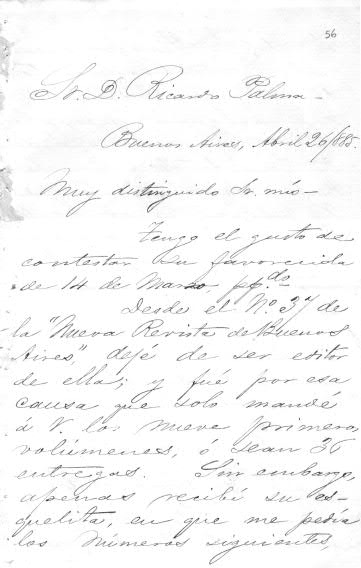 56
Sr. D. Ricardo Palma -
Buenos Aires, Abril 26/885.
Muy distinguido Sr. mío -
Tengo el gusto de
contestar su favorecida
de 14 de Marzo, ppdo.
Desde el No. 37 de
la "Nueva Revista de Buenos
Aires" dejé de ser editor
de ella; y fué por esa
causa que solo mandé
á V. los nueve primeros
volúmenes, ó sean 36
entregas. Sin embargo,
apenas recibí su es-
quelita, en que me pedía
los números siguientes,